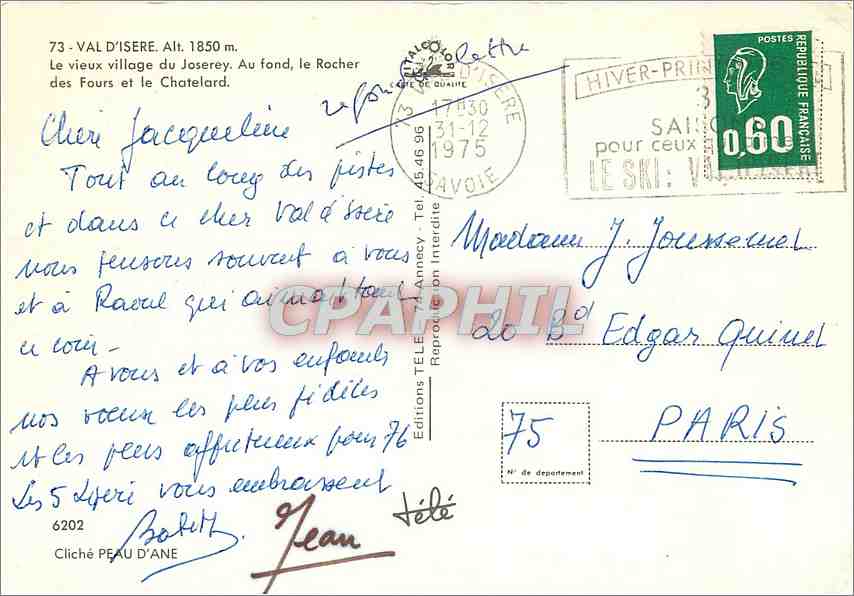 73 - VAL D'ISERE. Alt. 1850 m.
Le vieux village du Joserey. Au fond, le Rocher
des Fours et le Chatelard.
ITALCOLOR
CARTE DE QUALITE
lettre
73 D'ISERE
17H30
31-12
1975
SAVOIE
HIVER-PRIN
3
SAISON
pour ceux
LE SKI: VAL D'ISERE
POSTES
REPUBLIQUE FRANÇAISE
0,60
Chere Jacqueline
Tout au long des pistes
et dans ce cher Val d'Isère
nous pensons souvent à vous
et à Raoul qui aimait tant
ce coin -
A vous et à vos enfants
nos voeux les plus fidèles
et les plus affectueux pour 76
Les 5 vous embrassent
Jean
Editions TELE - 74 Annecy - Tel. 45.46.96
Reproduction Interdite
Madame J.
20 Bd Edgar Quinet
75
PARIS
N° de departement
télé
6202
Cliché PEAU D'ANE
CPAPHIL